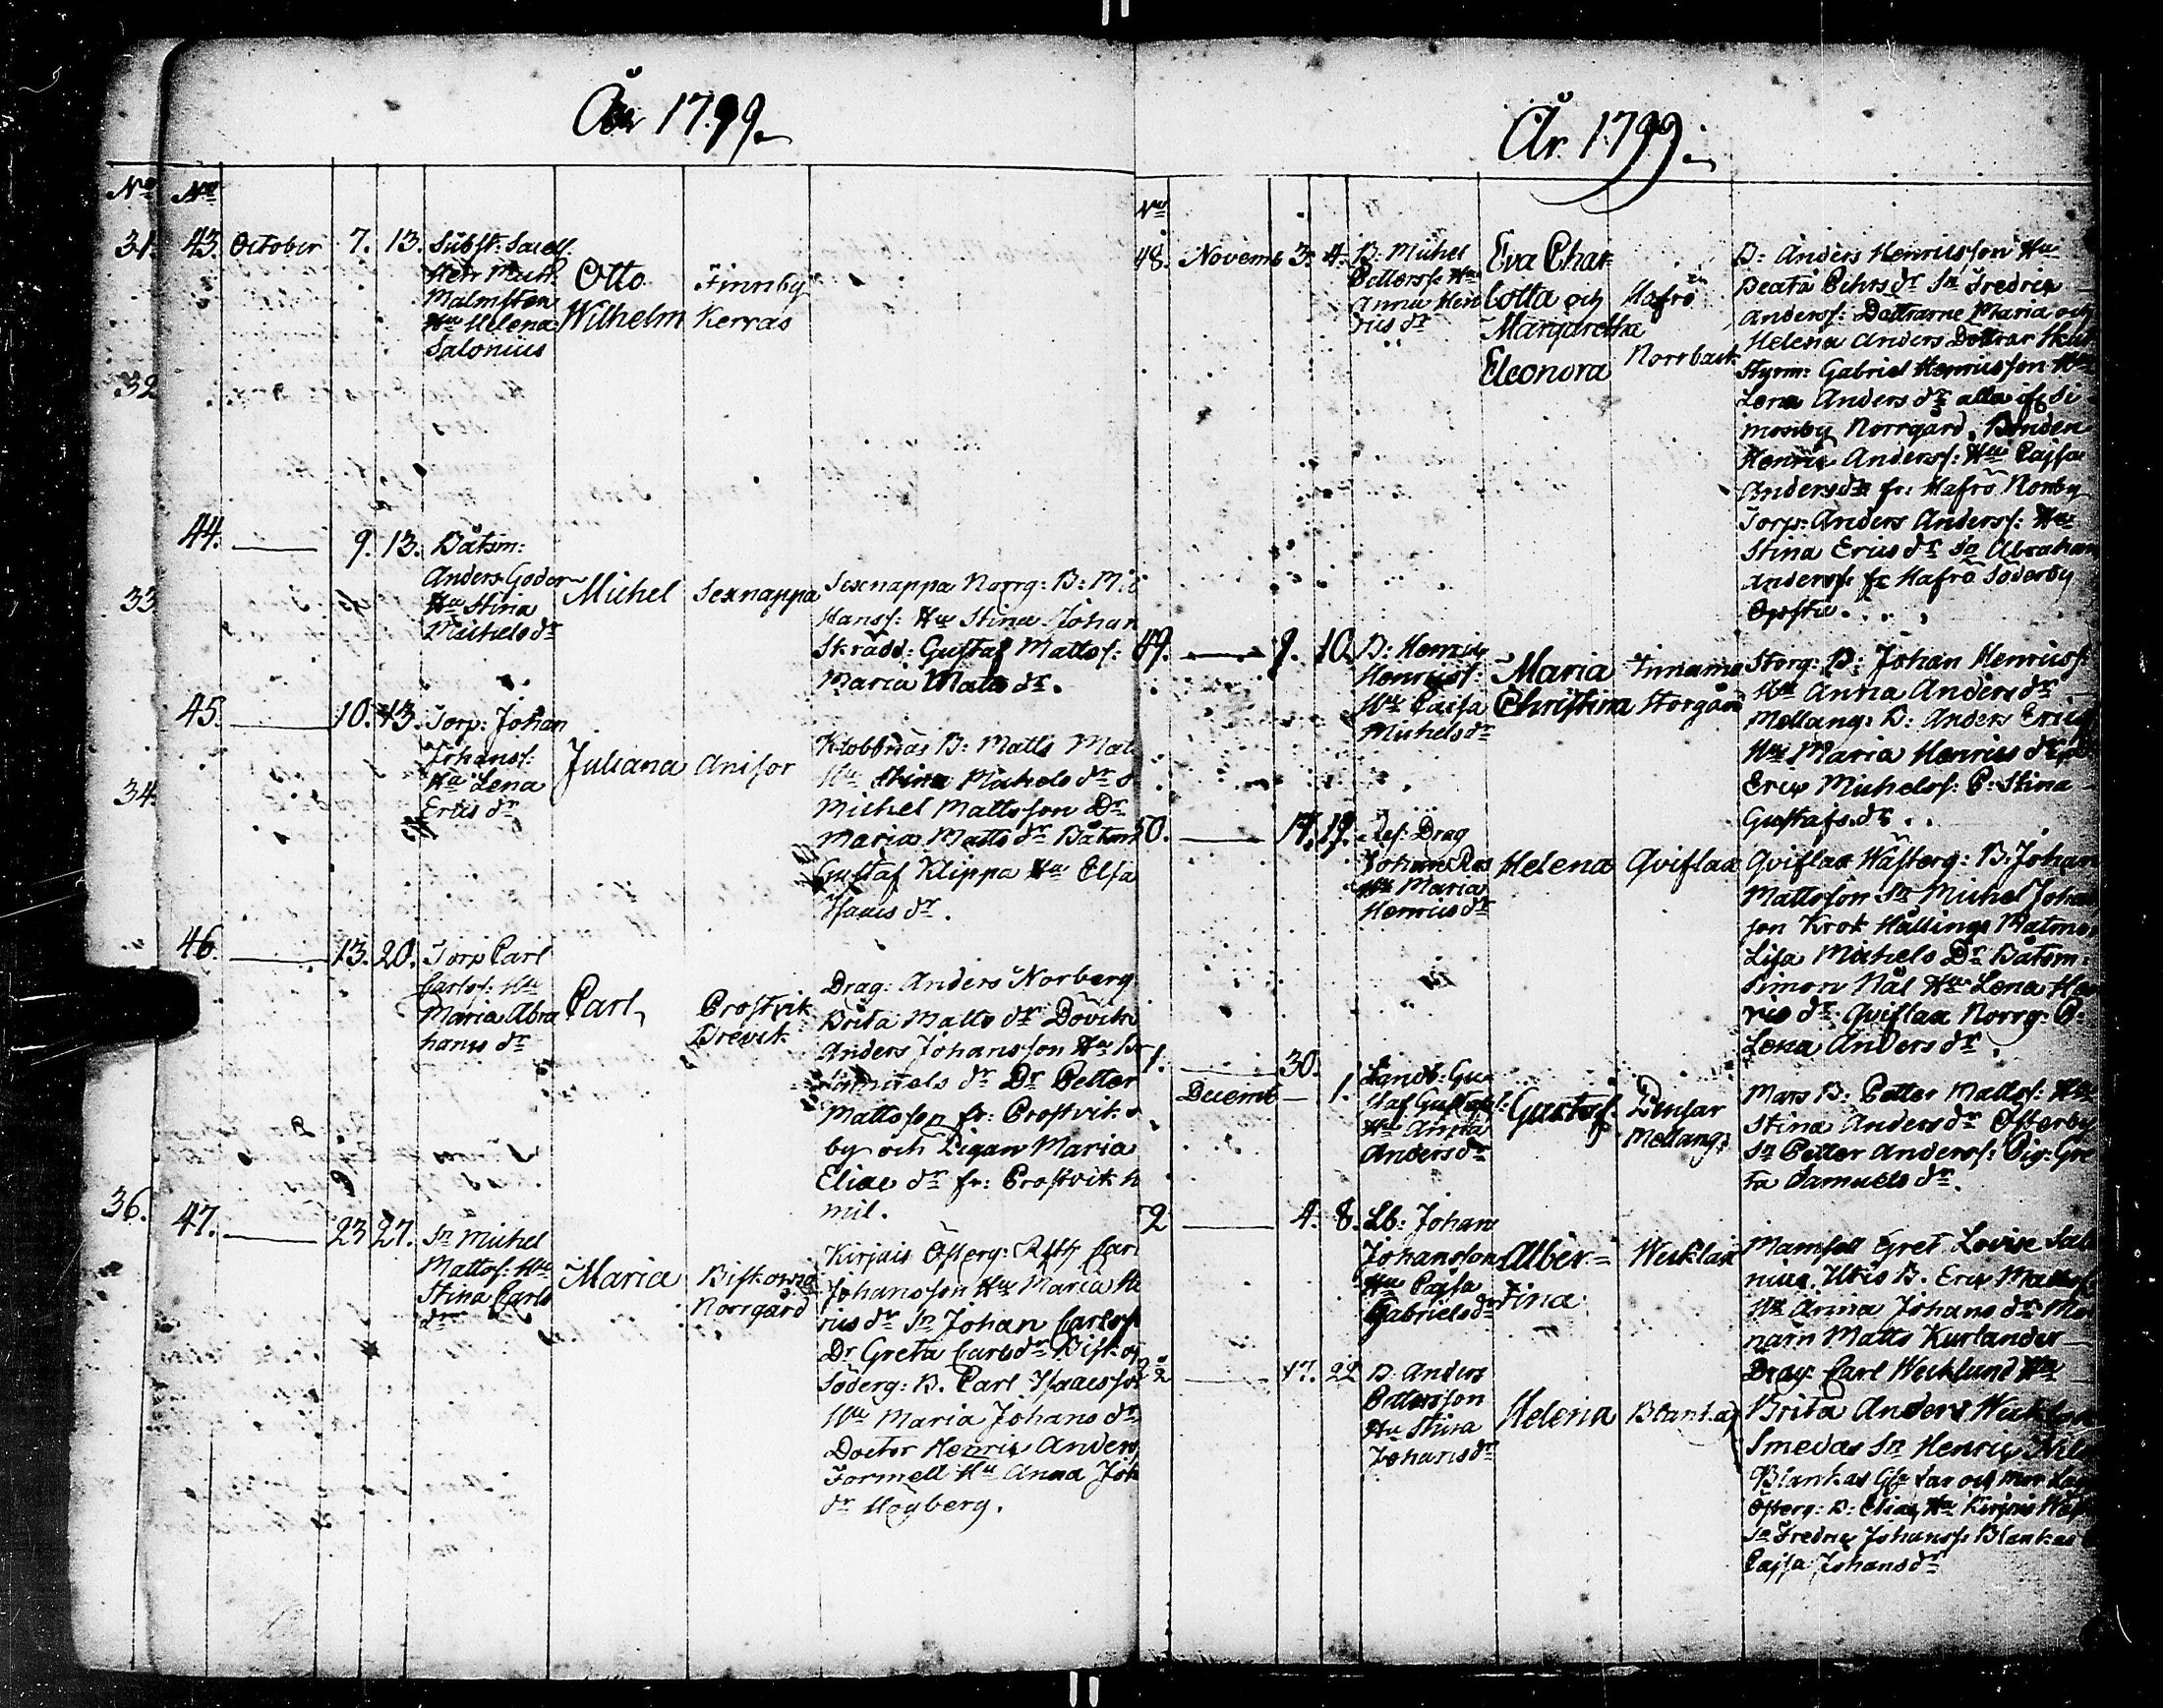 År 1799.
No No
31. 43. October 7. 13. Subst: Sacell.
Herr Math.
Malmsten
Hu Helena
Salonius
Otto
Wilhelm
Finnby
Kerras
32
44. — 9. 13. Båtsm:
Anders Goder
Hu Stina
Michels dr
Michel
Sexnappa
Sexnappa Norrg: B: Mic
Hanss: Hu Stina Johan
Skrädd: Gustaf Mattss:
Maria Mats dr.
33
45. — 10. 13. Torp: Johan
Johanss:
Hu Lena
Erics dr
Juliana
Anisor
Klobbnäs B: Matts Mat
Hu Stina Michels dr
Michel Mattsson Dr
Maria Matts dr Båtsm
Gustaf Klippa Hu Elsa
Isaacs dr.
34.
46. — 13. 20. Torp Carl
Carlss: Hu
Maria Abra
hams dr
Carl
Prostvik
Drevik
Drag: Anders Norberg
Brita Matts dr
Anders Johansson Hu
Samuels dr Dr Petter
Mattsson fr: Prostvik
by och Pigan Maria
Eliae dr fr: Prostvik
mil.
36.
47. — 23 27. Sn Michel
Mattss: Hu
Stina Carls
dr
Maria
Norrgård
Kirjais Österg: Carl
Johansson Hu Maria He
rics dr Sn Johan Carlss
Dr Greta Carls dr
Söderg: B. Carl Isaacsson
Hu Maria Johans dr
Doctor Henric Anders
Formell Hu Anna Joh
dr Högberg.
År 1799.
No
48. Novemb 3. 4. B: Michel
Petterss: Hu
Anna Hen
rics dr
Eva Char
lotta och
Margaretha
Eleonora
Hafrö
Norrback
B: Anders Henricsson Hu
Beata Pehrs dr Sn Fredric
Anderss: Döttrarne Maria och
Helena Anders Döttrar
Styrm: Gabriel Henricsson Hu
Lena Anders dr alla ifr Si
monby Norrgård. Bonden
Henric Anderss: Hu Cajsa
Anders dr fr: Hafrö Norrby
Torp: Anders Anderss: Hu
Stina Erics dr Sn Abraham
Anderss: fr Hafrö Söderby
49. — 9. 10. B: Henric
Henricss:
Hu Cajsa
Michels dr
Maria
Christina
Finnamo
Storgård
Storg: B: Johan Henricss:
Hu Anna Anders dr
Mellang: B: Anders Ericss
Hu Maria Henrics dr
Eric Michelss: P: Stina
Gustafs dr.
50. — 17. 19. Res: Drag
Johan Ras
Hu Maria
Henrics dr
Helena
Qviflax
Qviflax Wästerg: B: Johan
Mattsson Sn Michel Johan
son Krok Hällings Matmor
Lisa Michels Dr Båtsm:
Simon Nål Hu Lena Hen
rics dr Qviflax Norrg: P:
Lena Anders dr.
1. — 30.
Decemb — 1. Landb: Gu
staf Gustafss:
Hu Anna
Anders dr
Gustaf
Mellang:
Mars B: Petter Mattss: Hu
Stina Anders dr Österby
Sn Petter Anderss: Pig: Gre
ta Samuels dr.
52 — 4. 8. Lb: Johan
Johansson
Hu Cajsa
Gabriels dr
Alber=
tina
Wicklax
Mamsell Gret Lovise Salo
nius. Utis B. Eric Mattss
Hu Anna Johans dr Mo
narn Matts Kurlander —
Drag: Carl Wecklund Hu
Brita Anders
— 17. 22 B. Anders
Pettersson
Hu Stina
Johans dr
Helena
Blankas
Smedas Sn Henric Nils
Blankas
Österg: B: Elias Hu Kirjais
Sn Fredric Johanss: Blankas
Cajsa Johans dr